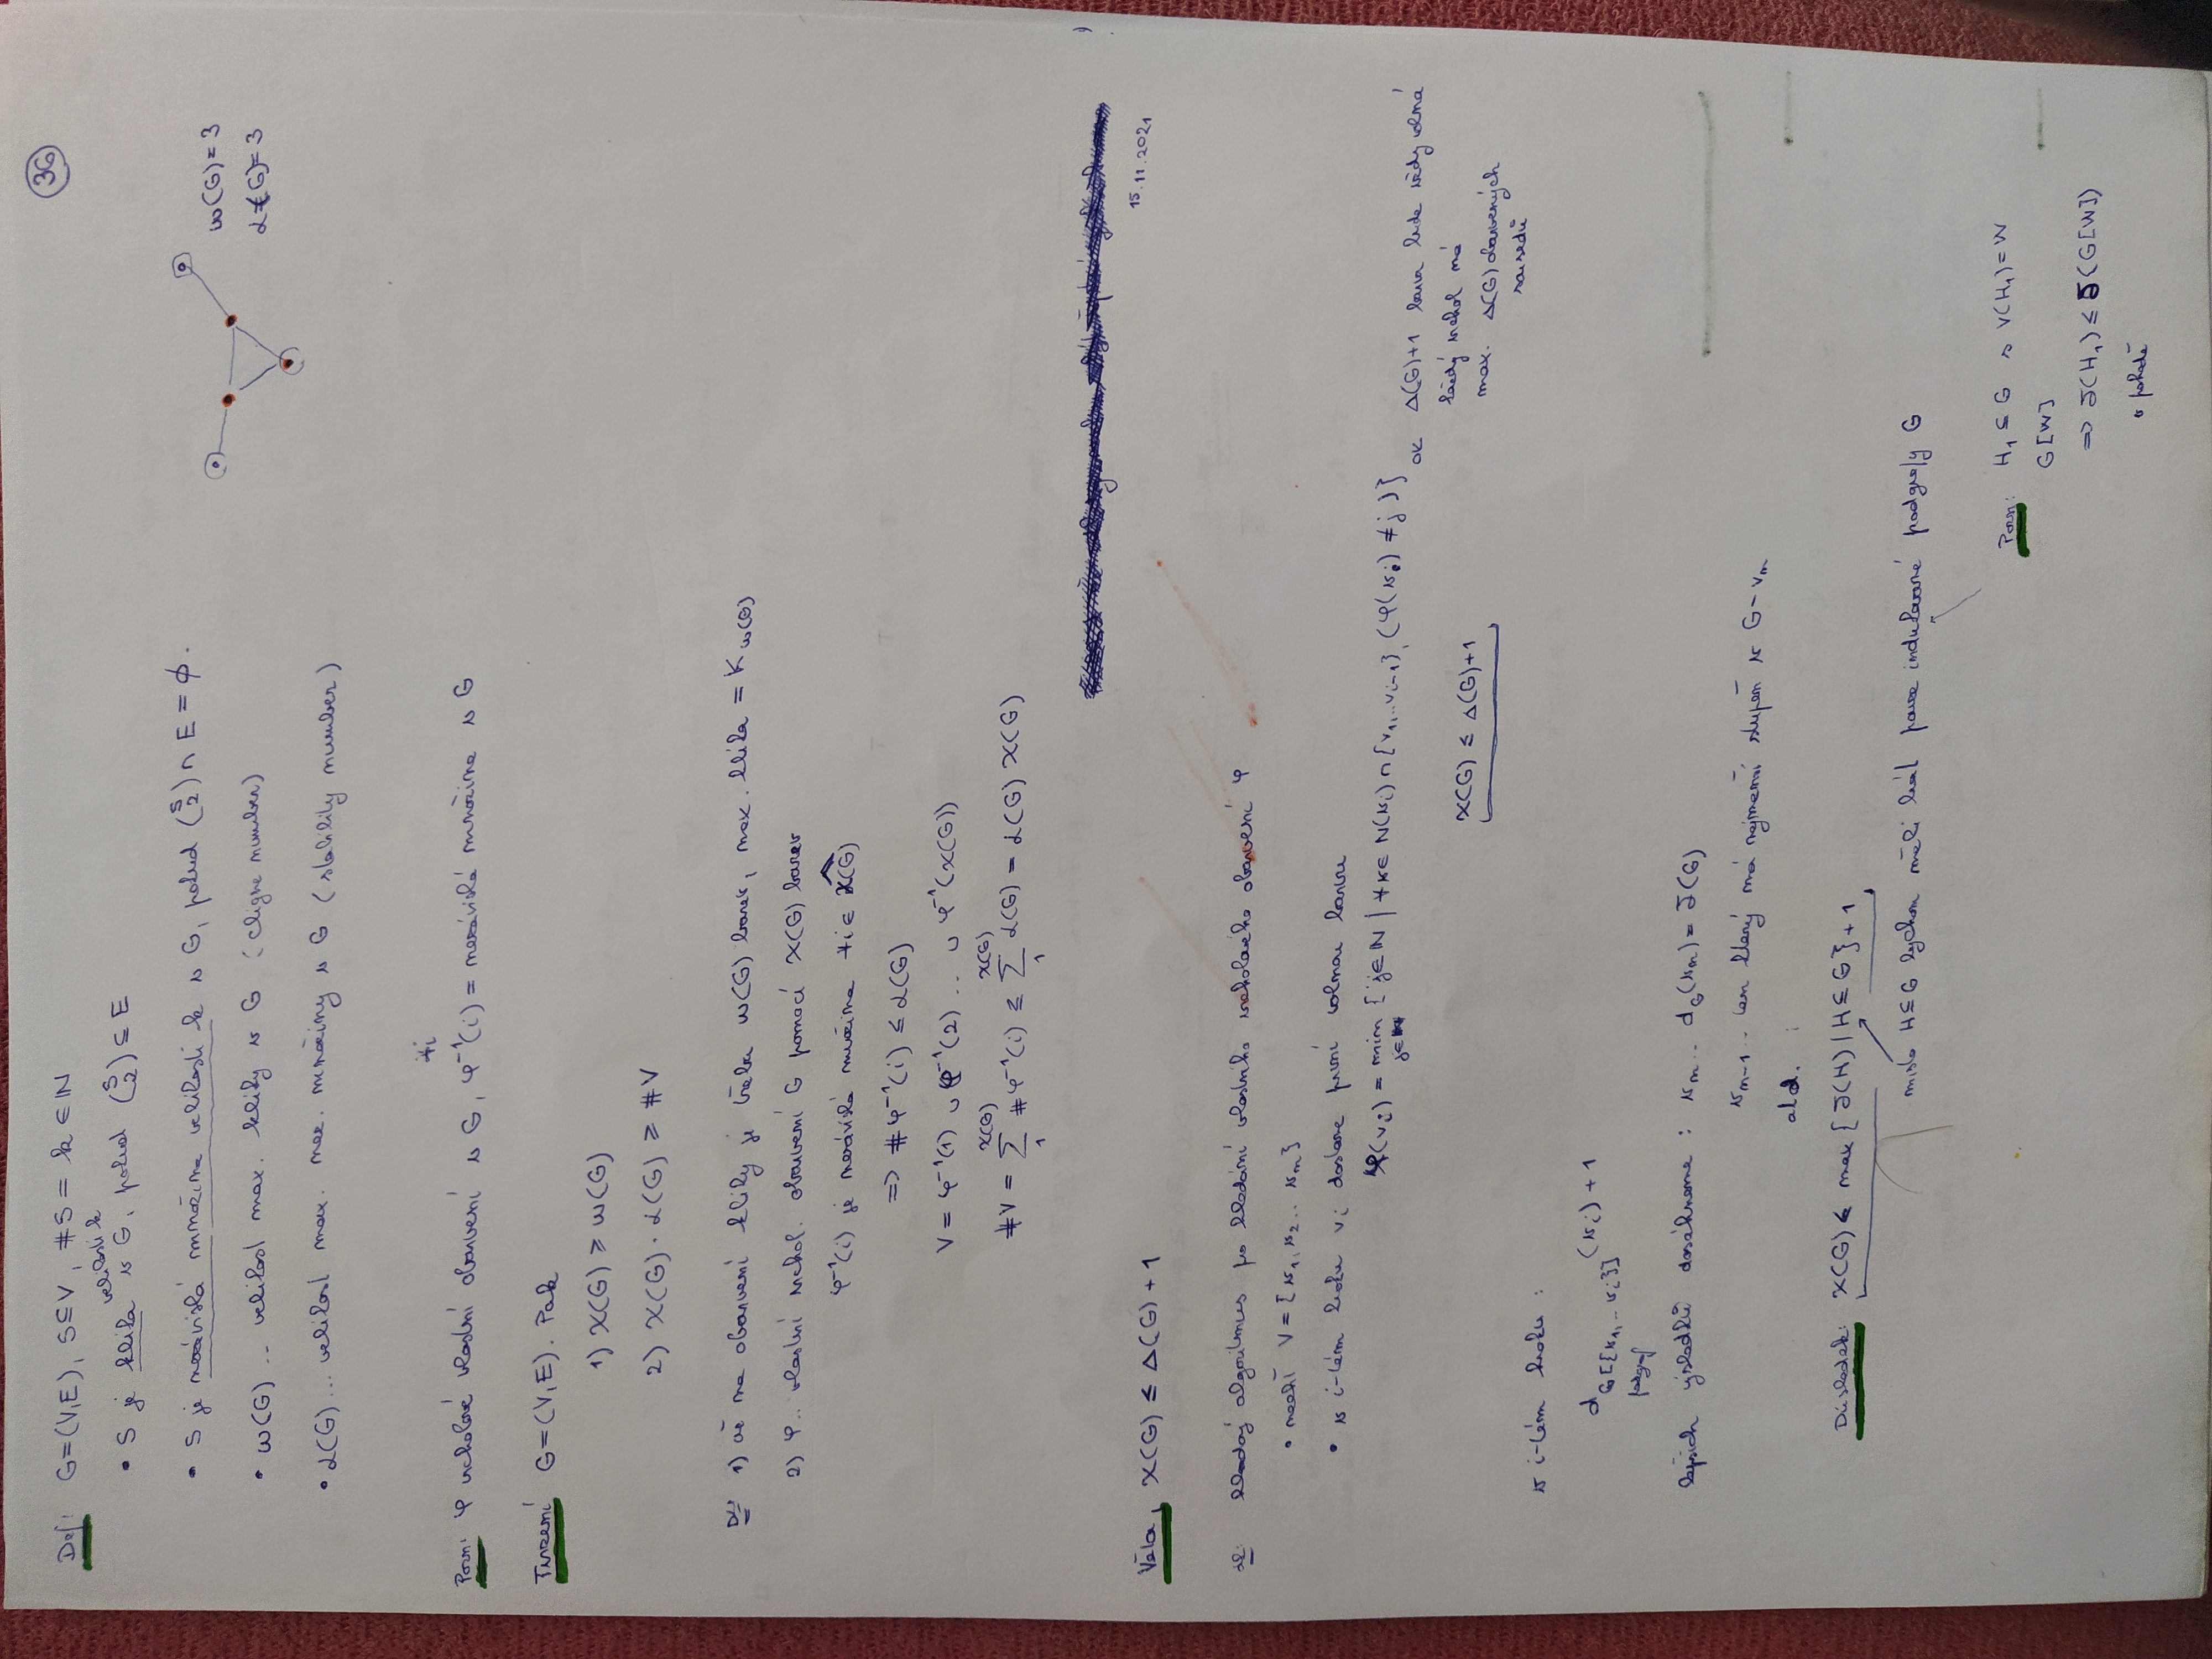 36
Def: G=(V,E), S⊆V, #S = k ∈ ℕ
• S je klika velikosti k v G, pokud (S 2) ⊆ E
• S je nezávislá množina velikosti k v G, pokud (S 2) ∩ E = ∅.
• ω(G) .. velikost max. kliky v G (clique number)
• α(G) ... velikost max. nez. množiny v G (stability number)
ω(G)=3
α(G)=3
Pozn: φ vrcholové vlastní obarvení v G, φ⁻¹(i) = nezávislá množina v G ∀i
Tvrzení G=(V,E). Pak
1) χ(G) ≥ ω(G)
2) χ(G) · α(G) ≥ #V
Dk: 1) už na obarvení kliky je třeba ω(G) barev, max. klika = K ω(G)
2) φ .. vlastní vrchol. obarvení G pomocí χ(G) barev
φ⁻¹(i) je nezávislá množina ∀i ∈ χ(G)
=> #φ⁻¹(i) ≤ α(G)
V = φ⁻¹(1) ∪ φ⁻¹(2) ... ∪ φ⁻¹(χ(G))
#V = ∑₁^χ(G) #φ⁻¹(i) ≤ ∑₁^χ(G) α(G) = α(G) χ(G)
15.11.2021
Věta χ(G) ≤ Δ(G) + 1
dk: hladový algoritmus pro hledání vlastního vrcholového obarvení φ
• nechť V = {v₁, v₂ .. vₙ}
• v i-tém kroku vᵢ dostane první volnou barvu
φ(vᵢ) = min {j∈ℕ | ∀k∈ N(vᵢ)∩{v₁,..vᵢ₋₁} (φ(vₖ) ≠ j)}
ale Δ(G)+1 barva bude vždy volná
každý vrchol má
max. Δ(G) obarvených
sousedů
χ(G) ≤ Δ(G)+1
v i-tém kroku :
d G[{v₁,..vᵢ}] (vᵢ) + 1
podgraf
lepších výsledků dosáhneme : vₙ .. d_G(vₙ) = δ(G)
vₙ₋₁ .. ten který má nejmenší stupeň v G-vₙ
atd.
Důsledek: χ(G) ≤ max {δ(H) | H⊆G} + 1
místo H⊆G bychom měli brát pouze indukované podgrafy G
Pozn: H₁ ⊆ G s V(H₁)=W
G[W]
=> δ(H₁) ≤ δ(G[W])